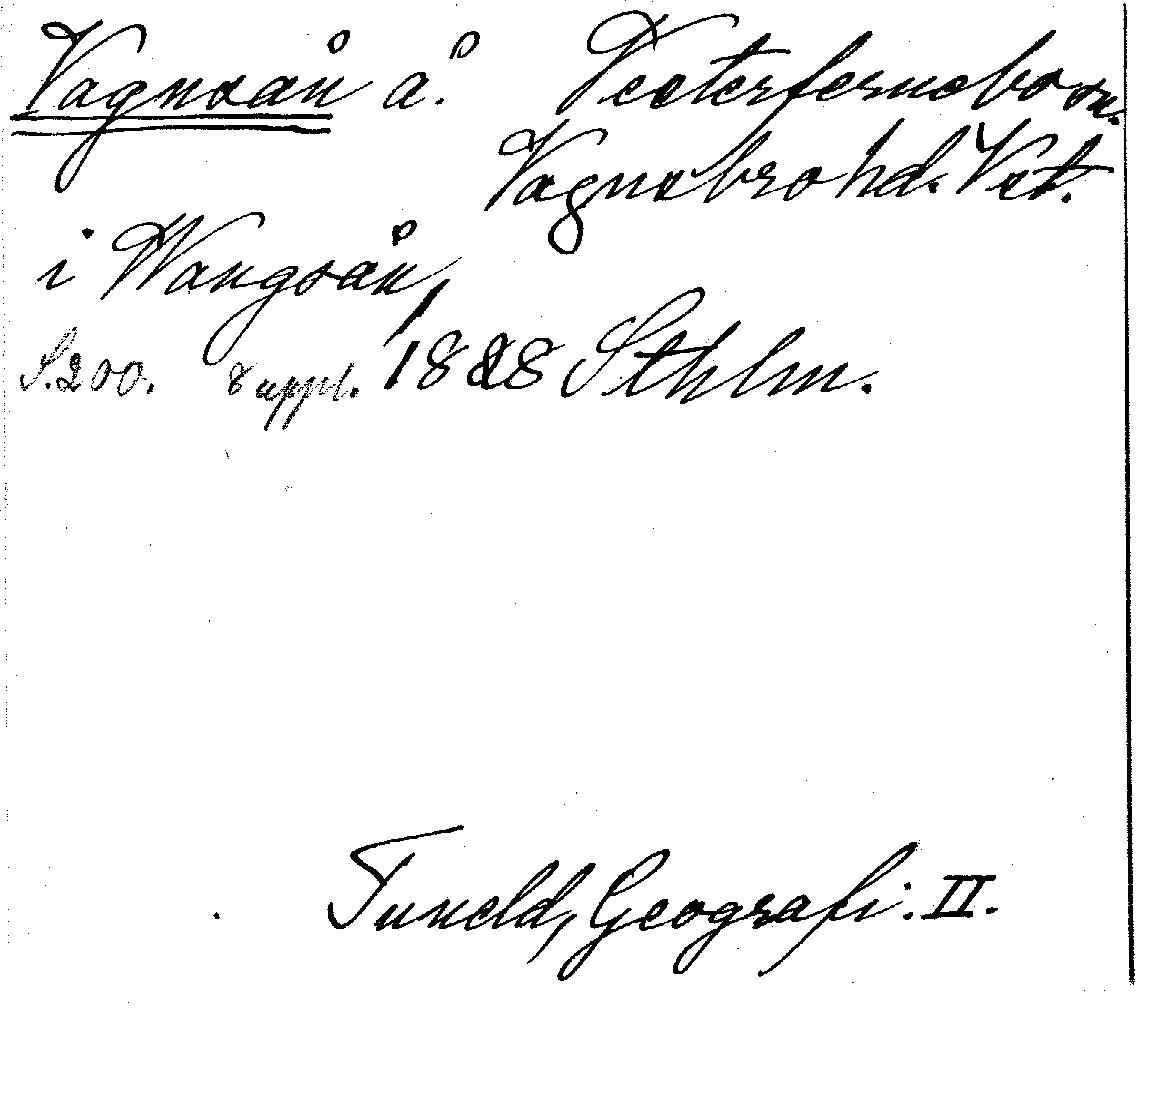 Vagnsån å. Vesterfernebo sn.
Vagnsbro hd. Vst.
i Wangsån,
S. 200. 8 uppl. 1828 Sthlm.
Tuneld, Geografi. II.